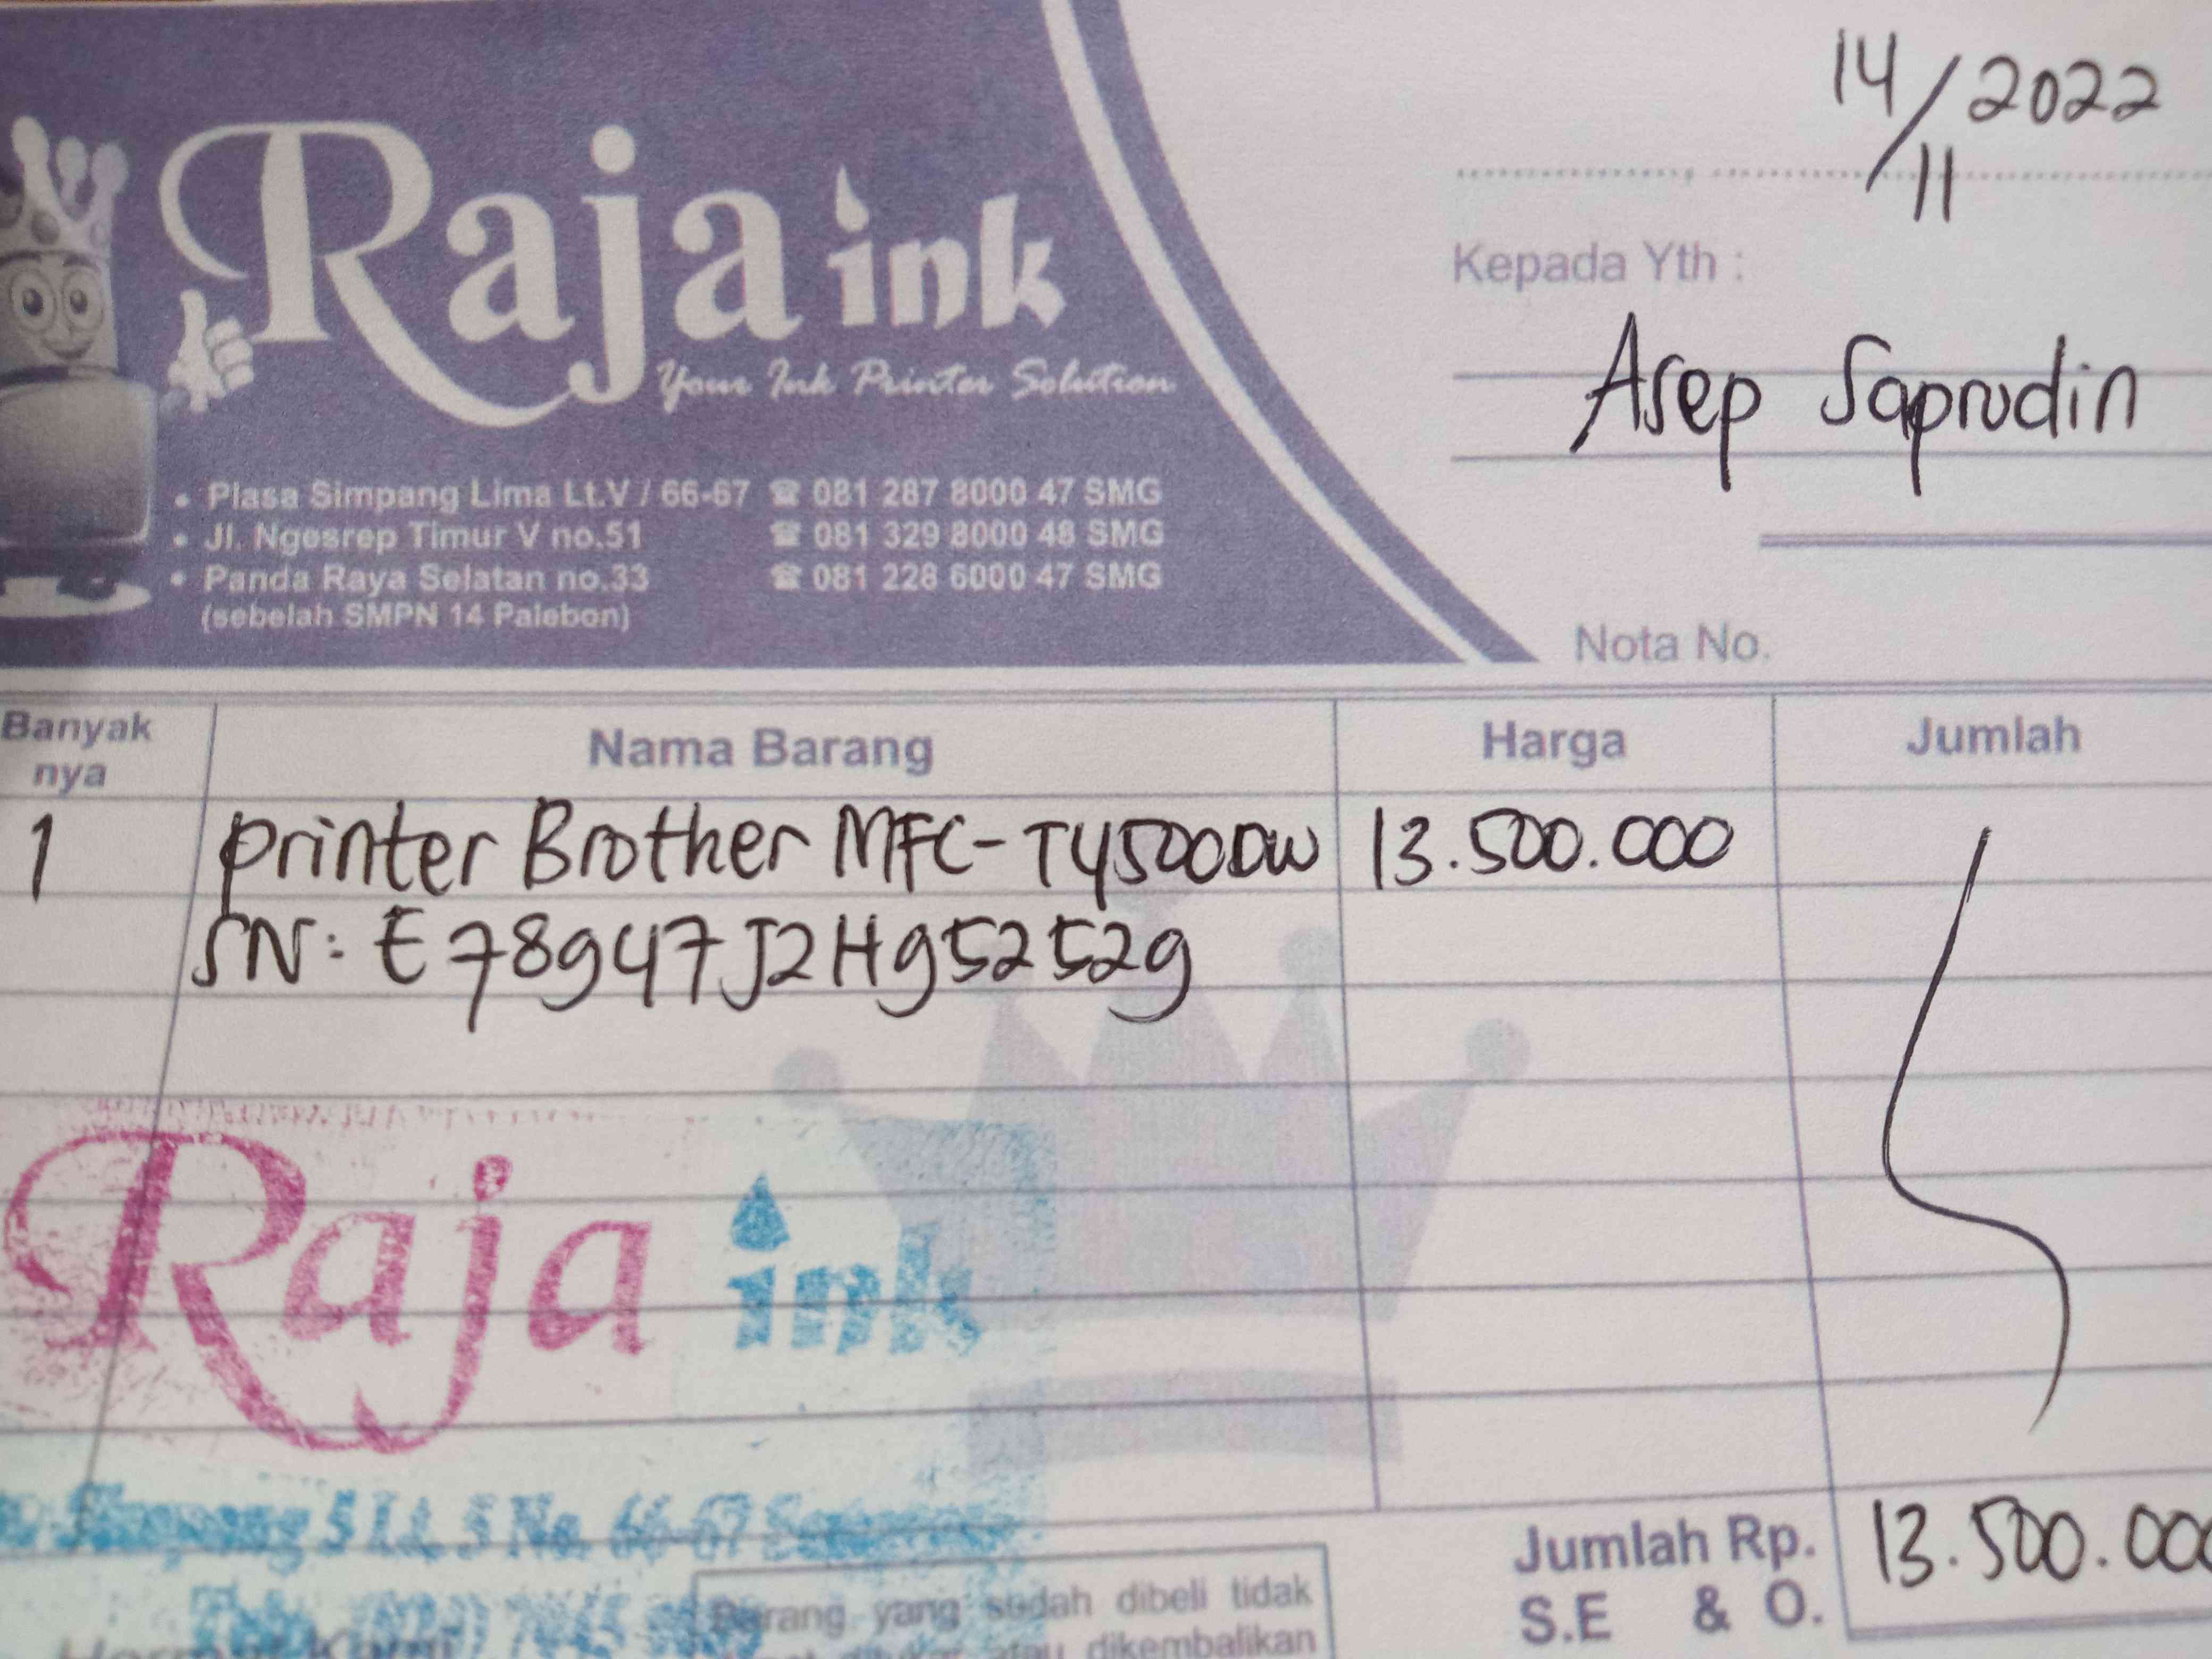 14/11/2022
Raja ink
Your Ink Printer Solution
Kepada Yth :
Asep Saprudin
• Plasa Simpang Lima Lt.V / 66-67 ☎ 081 287 8000 47 SMG
• Jl. Ngesrep Timur V no.51 ☎ 081 329 8000 48 SMG
• Panda Raya Selatan no.33 ☎ 081 228 6000 47 SMG
(sebelah SMPN 14 Palebon)
Nota No.
Banyak nya Nama Barang Harga Jumlah
1 printer Brother MFC-T4500DW 13.500.000
SN: E78947J2H952529
Raja ink
Simpang 5 Lt. 5 No. 66-67 Semarang
Jumlah Rp. 13.500.000
S.E & O.
Barang yang sudah dibeli tidak
atau dikembalikan
Hormat Kami